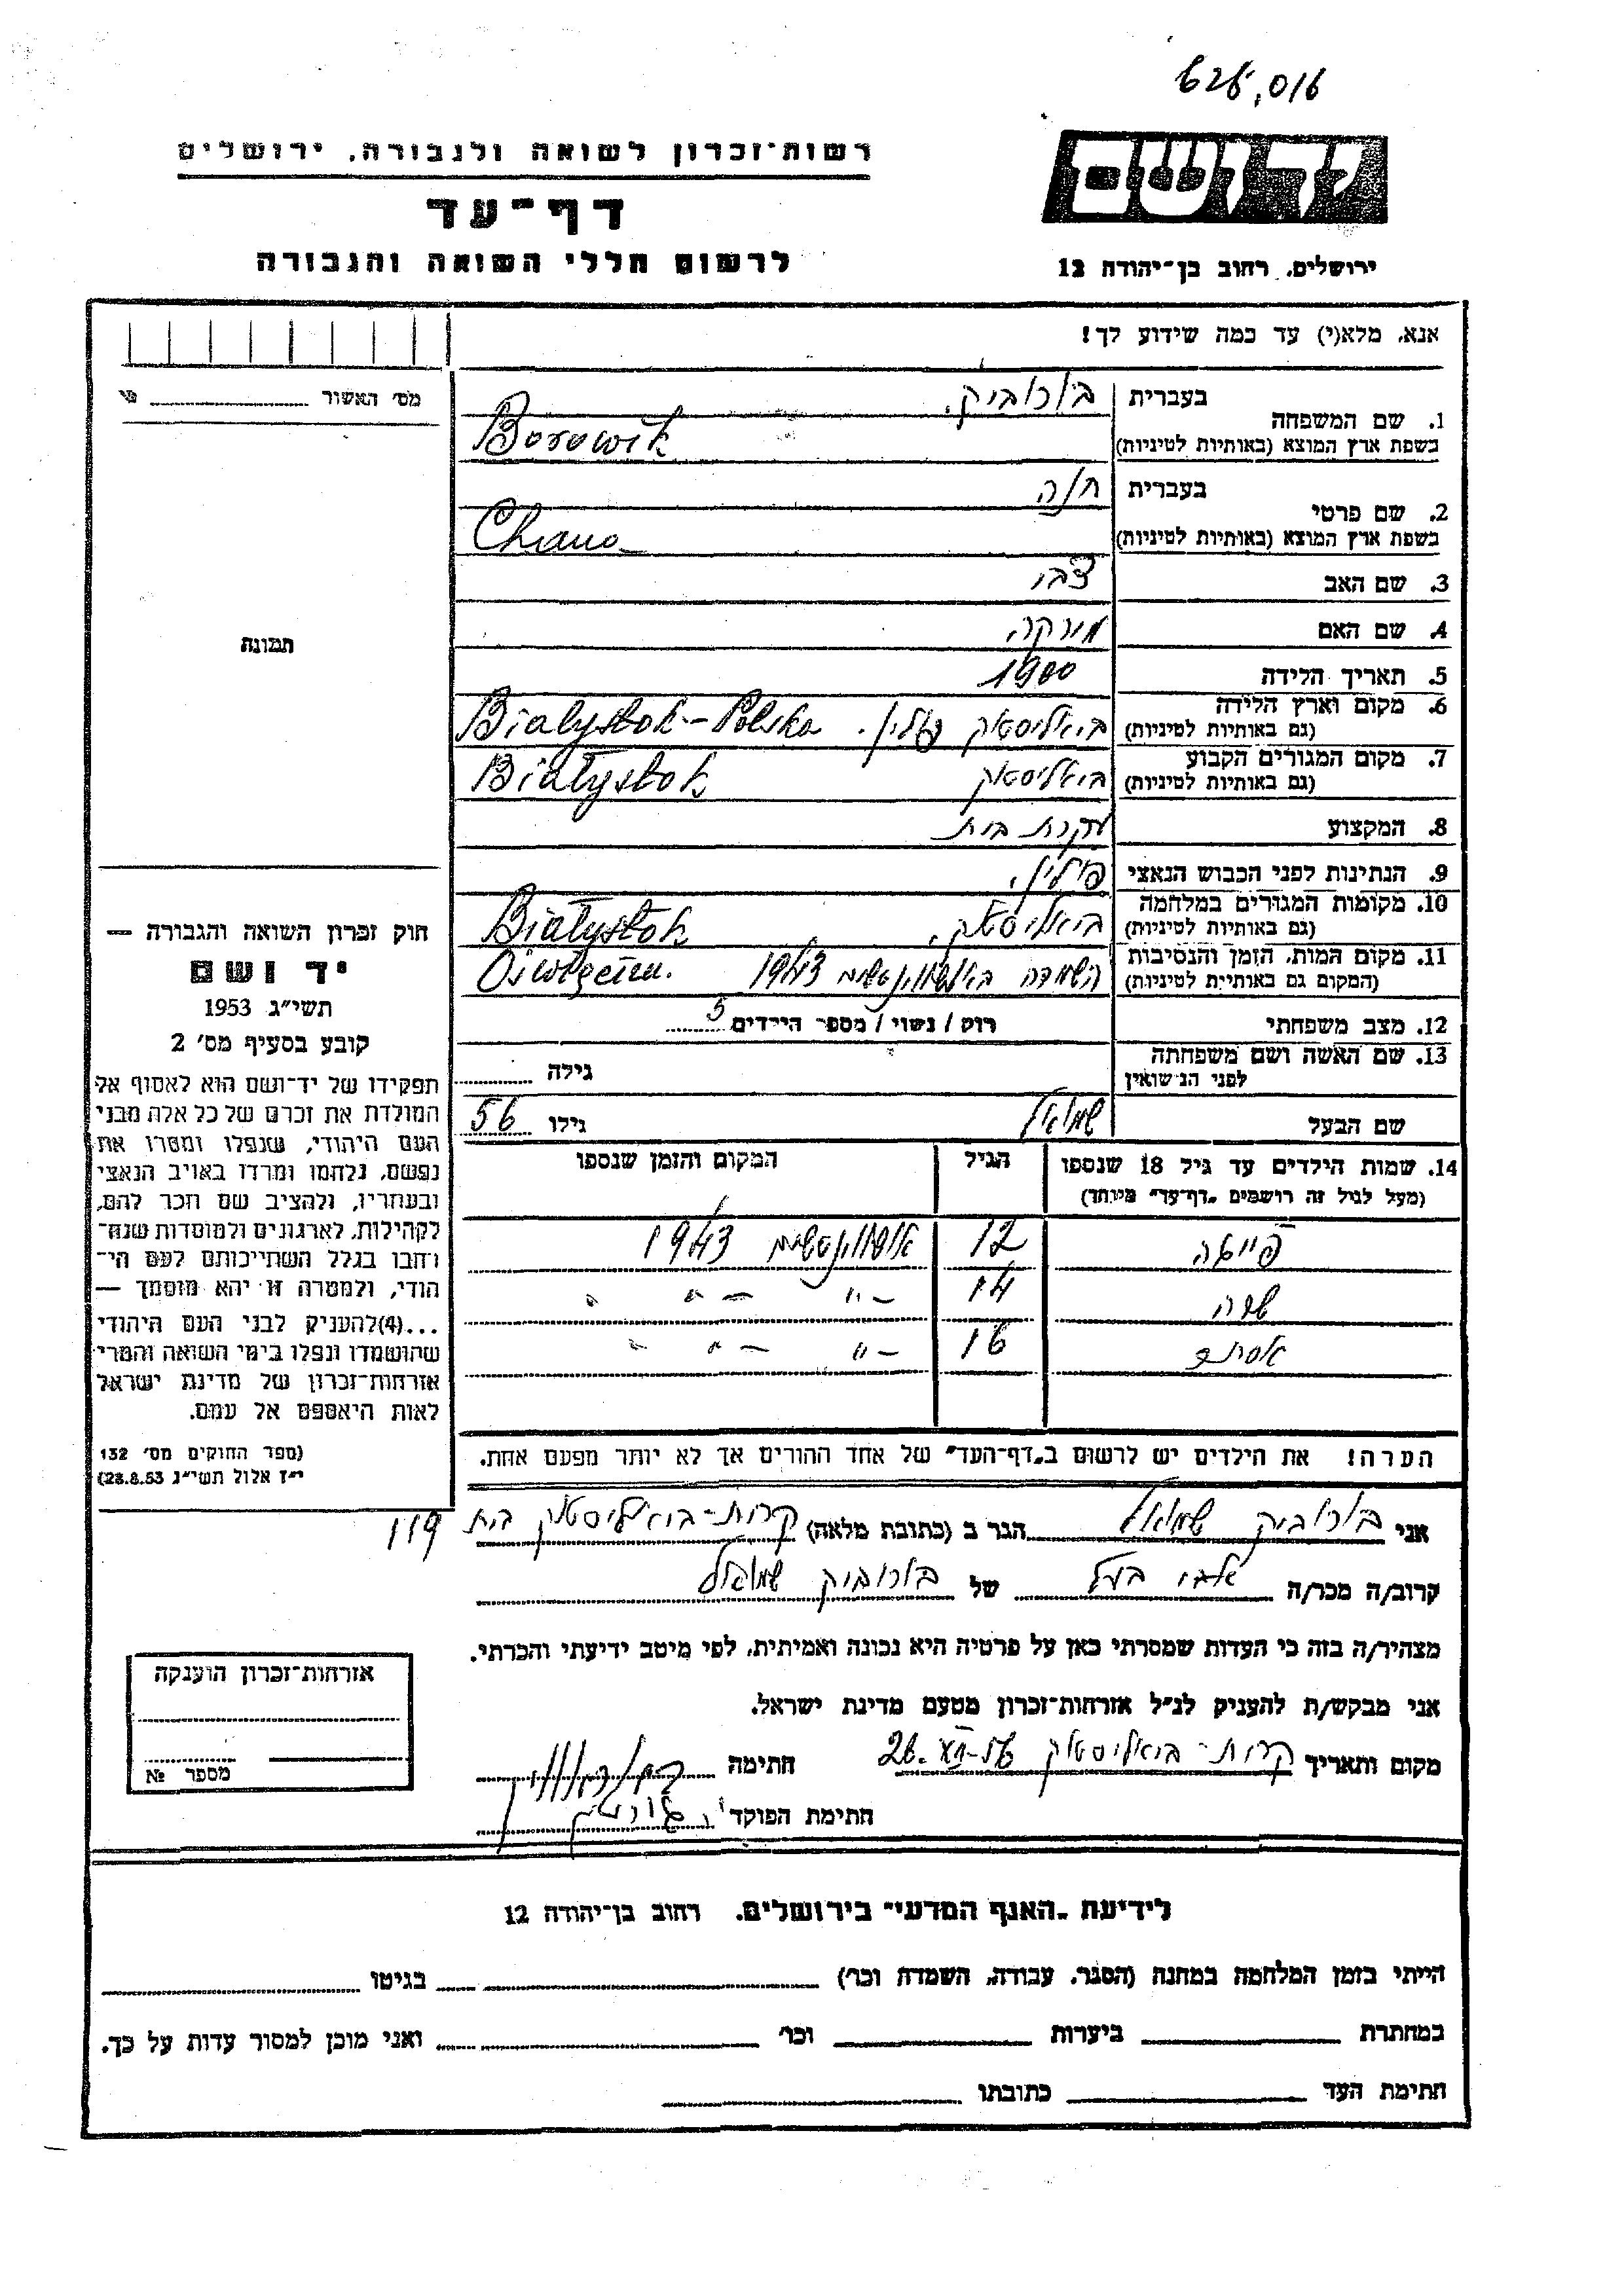 626,016
רשות-זכרון לשואה ולגבורה, ירושלים
דף-עד
לרשום חללי השואה והגבורה
ירושלים, רחוב בן-יהודה 12
אנא, מלא(י) עד כמה שידוע לך!
מס' האשור
1. שם המשפחה
בעברית בורוביק.
בשפת ארץ המוצא (באותיות לטיניות) Borowik
2. שם פרטי
בעברית חנה
בשפת ארץ המוצא (באותיות לטיניות) Chana
3. שם האב צבי
4. שם האם
5. תאריך הלידה 1900
6. מקום וארץ הלידה
(גם באותיות לטיניות) ביאליסטוק פולין. Bialystok-Polska
7. מקום המגורים הקבוע
(גם באותיות לטיניות) ביאליסטוק Białystok
8. המקצוע עקרת בית
9. הנתינות לפני הכבוש הנאצי פולין.
10. מקומות המגורים במלחמה
(גם באותיות לטיניות) ביאליסטוק. Białystok
11. מקום המות, הזמן והנסיבות
(המקום גם באותיית לטיניות) השמדה באושוויץ 1943
12. מצב משפחתי רוק / נשוי / מספר הילדים 5
13. שם האשה ושם משפחתה
לפני הנישואין גילה
שם הבעל שמואל גילו 56
14. שמות הילדים עד גיל 18 שנספו הגיל המקום והזמן שנספו
(מעל לגיל זה רושמים "דף-עד" מיוחד)
12 1943
שרה 14 -"- -"-
אסתר 16 -"- -"-
הערה! את הילדים יש לרשום ב"דף-העד" של אחד ההורים אך לא יותר מפעם אחת.
תמונה
חוק זכרון השואה והגבורה —
יד ושם
תשי"ג 1953
קובע בסעיף מס' 2
תפקידו של יד-ושם הוא לאסוף אל
המולדת את זכרם של כל אלה מבני
העם היהודי, שנפלו ומסרו את
נפשם, נלחמו ומרדו באויב הנאצי
ובעוזריו, ולהציב שם וזכר להם,
לקהילות, לארגונים ולמוסדות שנח-
רחבו בגלל השתייכותם לעם הי-
הודי, ולמטרה זו יהא מוסמך —
...(4)להעניק לבני העם היהודי
שהושמדו ונפלו בימי השואה והמרי
אזרחות-זכרון של מדינת ישראל
לאות היאספם אל עמם.
(ספר החוקים מס' 132
י"ז אלול תשי"ג 28.8.53)
אני בורוביק שמואל הגר ב (כתובת מלאה) קרית-ביאליסטוק בית 119
קרוב/ה מכר/ה בעל של בורוביק שמואל
מצהיר/ה בזה כי העדות שמסרתי כאן על פרטיה היא נכונה ואמיתית, לפי מיטב ידיעתי והכרתי.
אני מבקש/ת להעניק לנ"ל אזרחות-זכרון מטעם מדינת ישראל.
מקום ותאריך קרית-ביאליסטוק חתימה
חתימת הפוקד
אזרחות-זכרון הוענקה
מספר №
לידיעת "האגף המדעי" בירושלים, רחוב בן-יהודה 12
הייתי בזמן המלחמה במחנה (הסגר, עבודה, השמדה וכו') בגיטו
במחתרת ביערות וכו' ואני מוכן למסור עדות על כך.
חתימת העד כתובתו